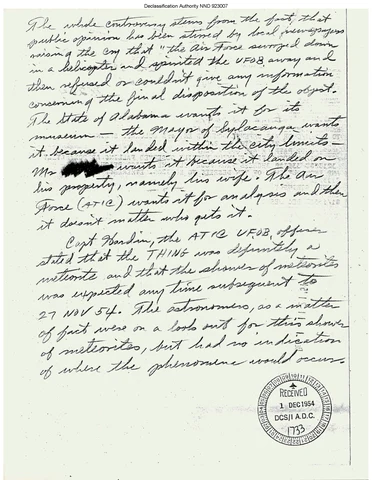 Declassification Authority NND 923007
The whole controversy stems from the fact, that
public opinion has been stirred by local newspapers
raising the cry that "the Air Force swooped down
in a helicopter and spirited the UFOB away and
then refused or couldn't give any information
concerning the final disposition of the object.
The State of Alabama wants it for its
museum — the Mayor of Sylacauga wants
it because it landed within the city limits —
Mr wants it because it landed on
his property, namely his wife. The Air
Force (ATIC) wants it for analyses and then
it doesn't matter who gets it.
Capt Hardin, the ATIC UFOB, officer
stated that the THING was definitely a
meteorite and that the shower of meteorites
was expected any time subsequent to
27 NOV 54. The astronomers, as a matter
of fact were on a look out for this shower
of meteorites, but had no indication
of where the phenomena would occur.
RECEIVED
1 DEC 1954
DCS/I A.D.C.
1733